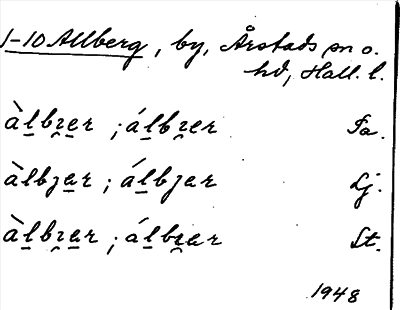 1-10 Allberg, by, Årstads sn o.
hd, Hall. l.
àlbɪer ; álbɪer Ta.
àlbjar ; álbjar Lj.
àlbɪar ; álbɪar St.
1948